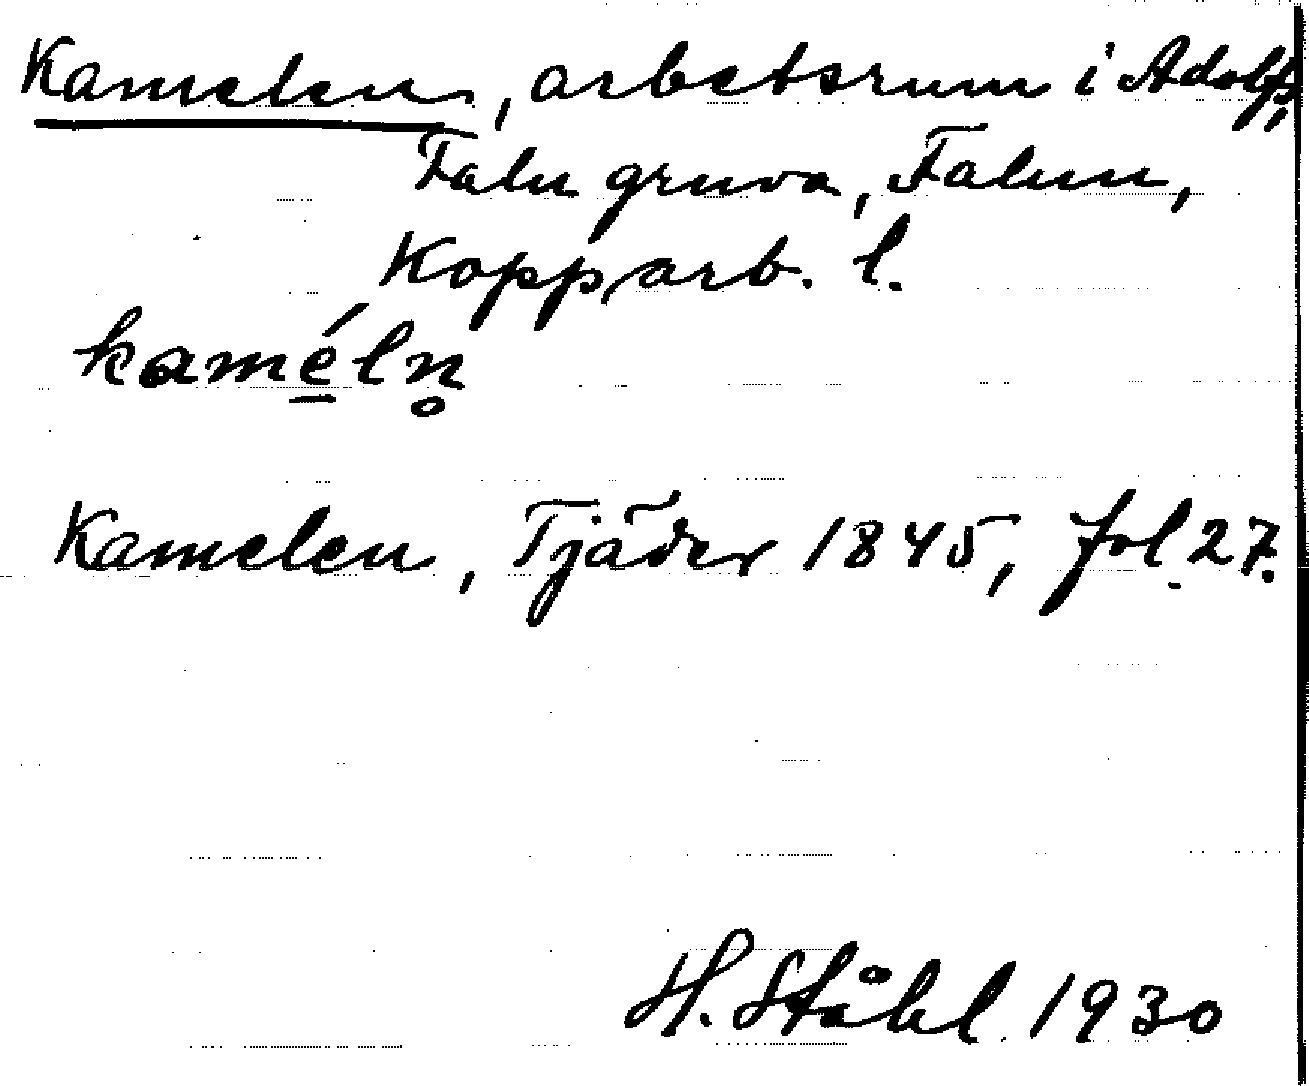 Kamelen, arbetsrum i Adolfs,
Falu gruva, Falun,
Kopparb. l.
kamé̱ln̥
Kamelen, Tjäder 1845, fol. 27.
H. Ståhl 1930